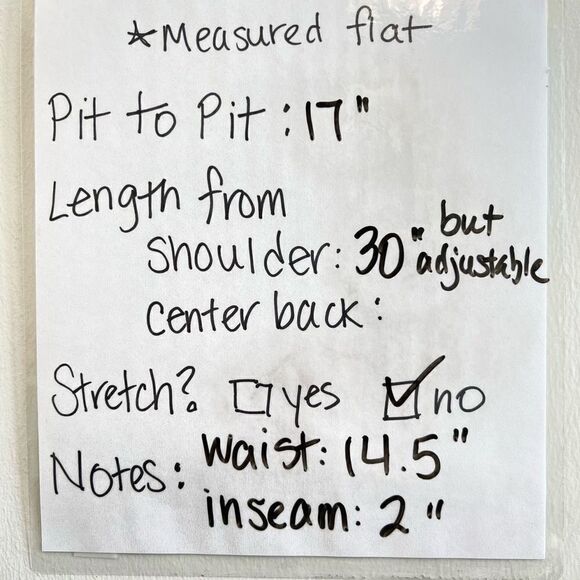 *Measured flat
Pit to Pit : 17"
Length from
shoulder: 30" but adjustable
center back:
Stretch? yes no
Notes: waist: 14.5"
inseam: 2"